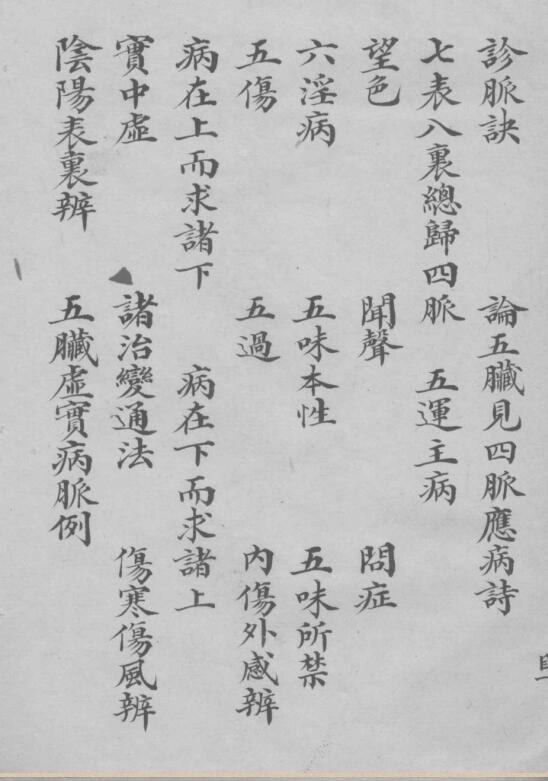 診脈訣　論五臟見四脈應病詩
七表八裏總歸四脈　五運主病
望色　聞聲　問症
六淫病　五味本性　五味所禁
五傷　五過　內傷外感辨
病在上而求諸下　病在下而求諸上
實中虛　諸治變通法　傷寒傷風辨
陰陽表裏辨　五臟虛實病脈例